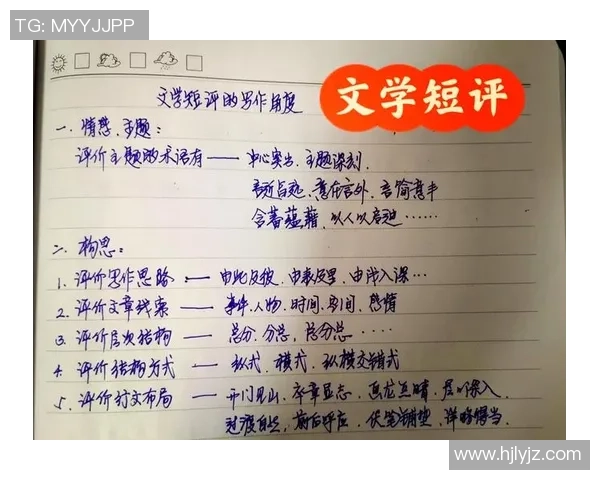 TG: MYYJJPP
文学短评
文学短评的写作角度
一、情感、主题:
评价主题的术语有——中心突出、主题深刻、
言近旨远、意在言外、言简意丰
含蓄蕴藉、以人以启迪……
二、构思:
1、评价写作思路——由此及彼、由表及里、由浅入深…
2、评价文章线索——事件、人物、时间、空间、感情
3、评价层次结构——总分、分总、总分总……
4、评价结构方式——纵式、横式、纵横交错式
5、评价行文布局——开门见山、卒章显志、画龙点睛、层层深入
过渡自然、前后呼应、伏笔铺垫、详略得当.
www.hjlyjz.com